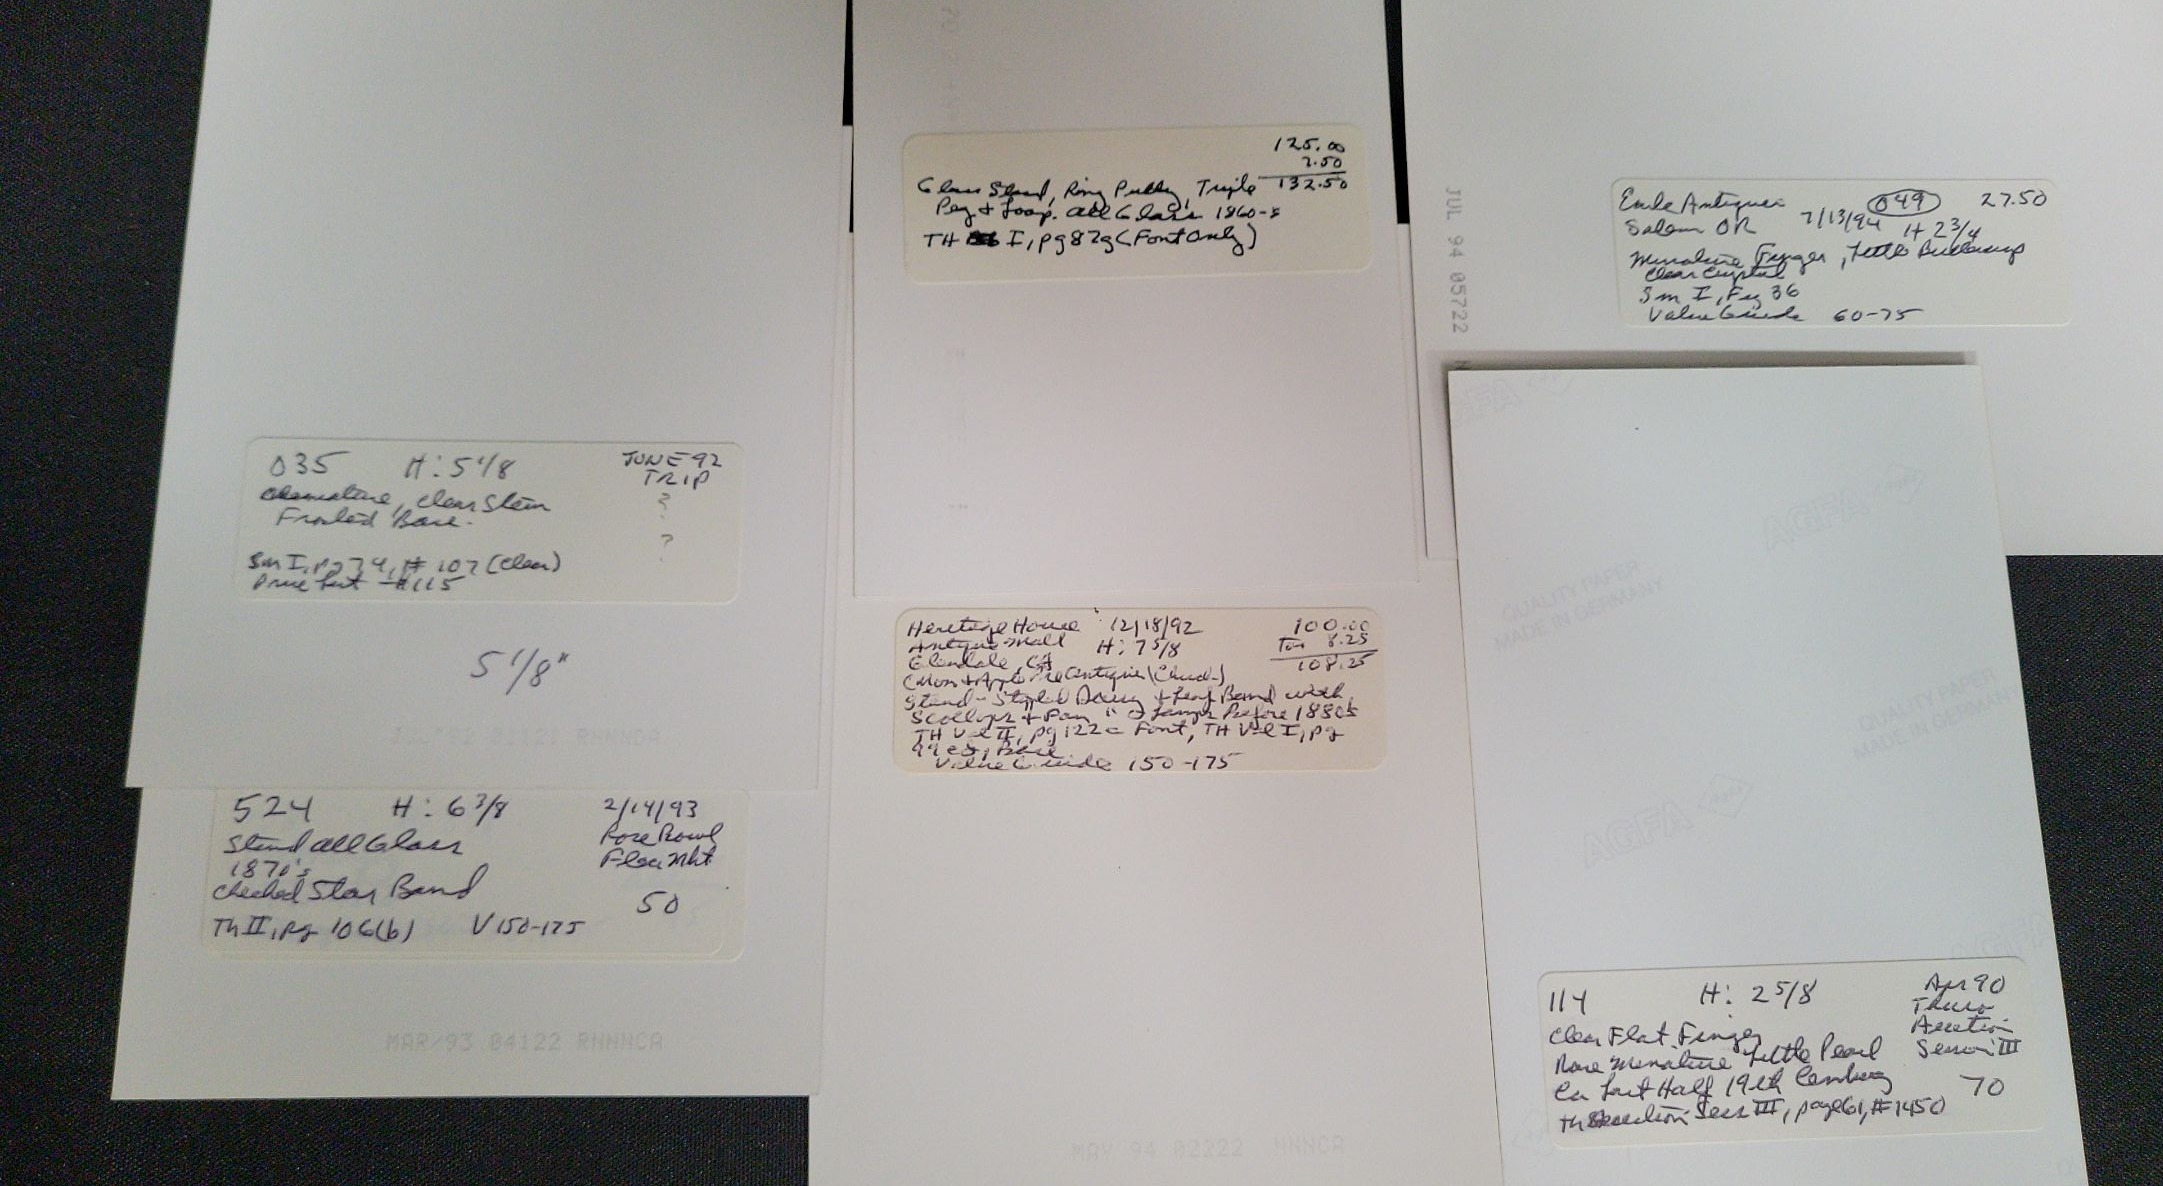 035 H: 5 1/8 JUNE 92
TRIP
Miniature, Clear Stem ?
Frosted Base.
?
Sm I, pg 74, # 107 (Clear)
Price List #115
5 1/8"
524 H: 6 3/8 2/14/93
Stand all Glass Rose Bowl
1870's Flea Mkt
Checked Star Band
50
Th II, pg 106(b) V 150-175
MAR 93 04122 RNNNCA
125.00
7.50
Glass Stand, Ring Punty, Triple 132.50
Peg & Loop. all Glass 1860-s
TH I, pg 87g (Font Only)
Heritage House 12/18/92 100.00
Antique Mall H: 7 5/8 Tax 8.25
Glendale, CA 108.25
(Mom & Apple Pie Antiques
Stand - Stippled Daisy & Leaf Band with
Scollops & Fan " Lamps Before 1880s
TH Vol II, pg 122 c Font, TH Vol I, pg
99 Base
Value Guide 150-175
MAY 94 02222 NNNCA
JUL 94 05722
Antiques 049 27.50
Salem OR 7/13/94 H 2 3/4
Miniature Finger, Little Buttercup
Clear Crystal
Sm I, Fig 36
Value Guide 60-75
AGFA
AGFA
QUALITY PAPER
MADE IN GERMANY
QUALITY PAPER
MADE IN GERMANY
AGFA
AGFA
114 H: 2 5/8 Apr 90
Thuro
Clear Flat Finger Auction
Rare Miniature Little Pearl Session III
Ca Last Half 19th Century 70
Th Auction Sess III, page 61, #1450